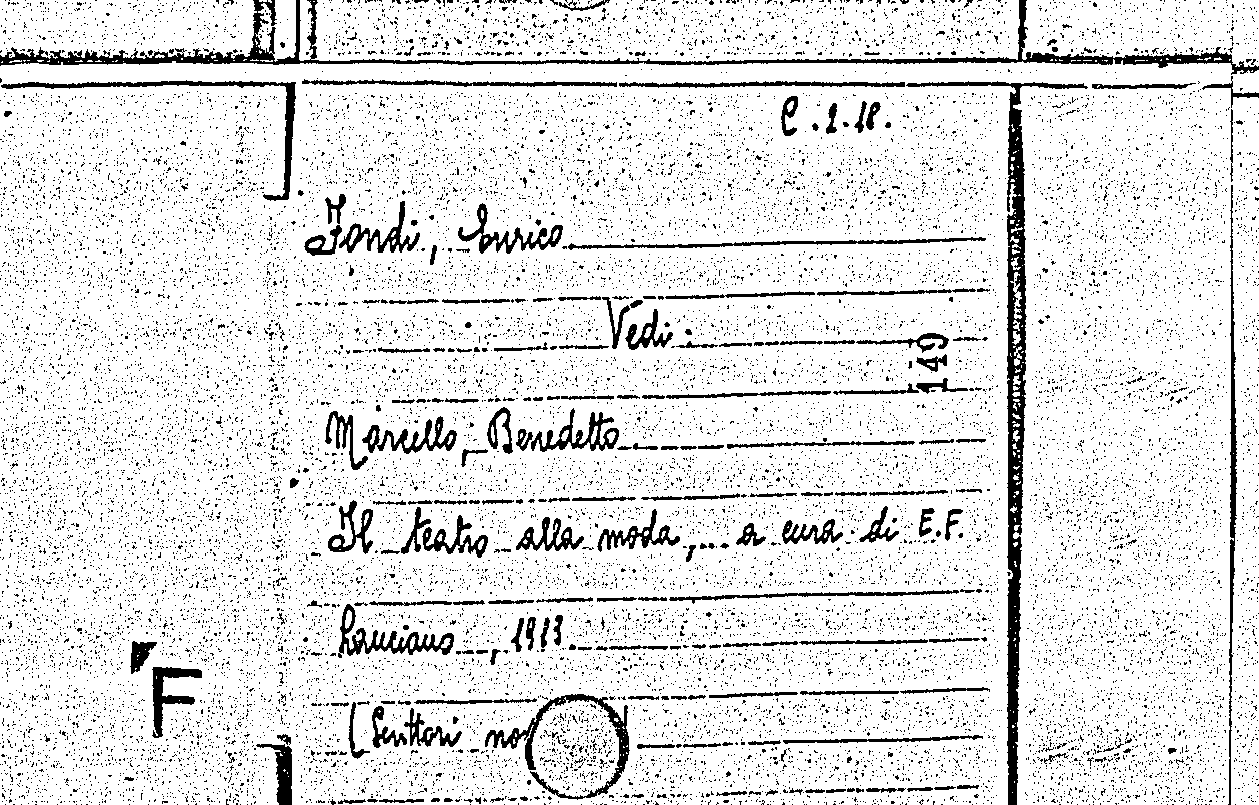 C.1.18.
Fondi, Enrico
Vedi:
149
Marcello, Benedetto
Il teatro alla moda, a cura di E.F.
Lanciano, 1913.
(Scrittori no
F